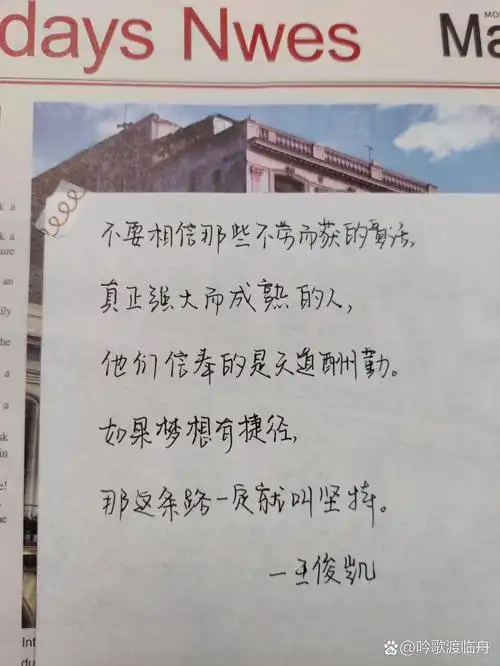 days Nwes
MO
Ma
不要相信那些不劳而获的童话,
真正强大而成熟的人,
他们信奉的是天道酬勤。
如果梦想有捷径,
那这条路一定就叫坚持。
—王俊凯
k a
k a
an
ily
the
a
f a
sk
in
e!
he
Int
du
@吟歌渡临舟